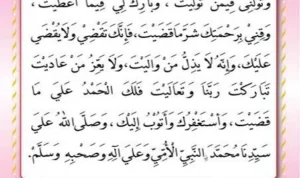 وَتَوَلَّنِي فِيمَنْ تَوَلَّيْتَ، وَبَارِكْ لِي فِيمَا أَعْطَيْتَ،
وَقِنِي بِرَحْمَتِكَ شَرَّ مَا قَضَيْتَ، فَإِنَّكَ تَقْضِيْ وَلَا يُقْضَى
عَلَيْكَ، وَإِنَّهُ لَا يَذِلُّ مَنْ وَالَيْتَ، وَلَا يَعِزُّ مَنْ عَادَيْتَ
تَبَارَكْتَ رَبَّنَا وَتَعَالَيْتَ فَلَكَ الْحَمْدُ عَلَى مَا
قَضَيْتَ، وَأَسْتَغْفِرُكَ وَأَتُوْبُ إِلَيْكَ، وَصَلَّى اللهُ عَلَى
سَيِّدِنَا مُحَمَّدٍ النَّبِيِّ الْأُمِّيِّ وَعَلَى آلِهِ وَصَحْبِهِ وَسَلَّمَ.